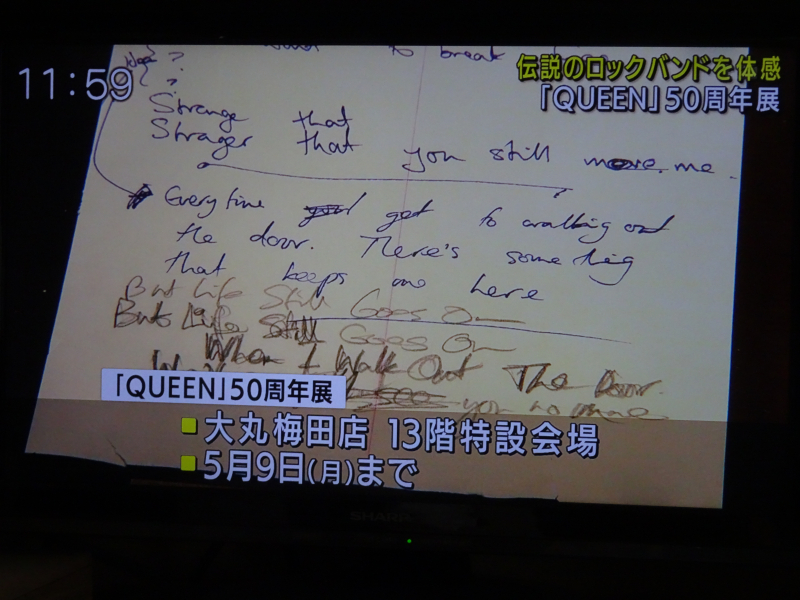 11:59
伝説のロックバンドを体感
「QUEEN」50周年展
to break
?
?
Strange that
Strager that you still move me.
Everytime get to walking out
the door. There's something
that keeps me here
But Life Still Goes On
But Life Still Goes On
When I Walk Out The Door.
you no more
「QUEEN」50周年展
大丸梅田店 13階特設会場
5月9日(月)まで
SHARP